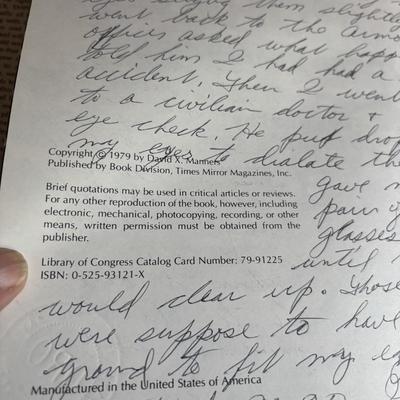 eyes singing them slightly
went back to the armo
office asked what happ
told him I had had a
accident. Then I went
to a civilian doctor +
eye check. He put drop
my eyes to dialate the
Copyright © 1979 by David X. Manners
Published by Book Division, Times Mirror Magazines, Inc.
gave m
Brief quotations may be used in critical articles or reviews.
For any other reproduction of the book, however, including
pair o
electronic, mechanical, photocopying, recording, or other
means, written permission must be obtained from the
glasses
publisher.
until
Library of Congress Catalog Card Number: 79-91225
ISBN: 0-525-93121-X
would clear up. Those
were suppose to have
ground to fit my e
Manufactured in the United States of America